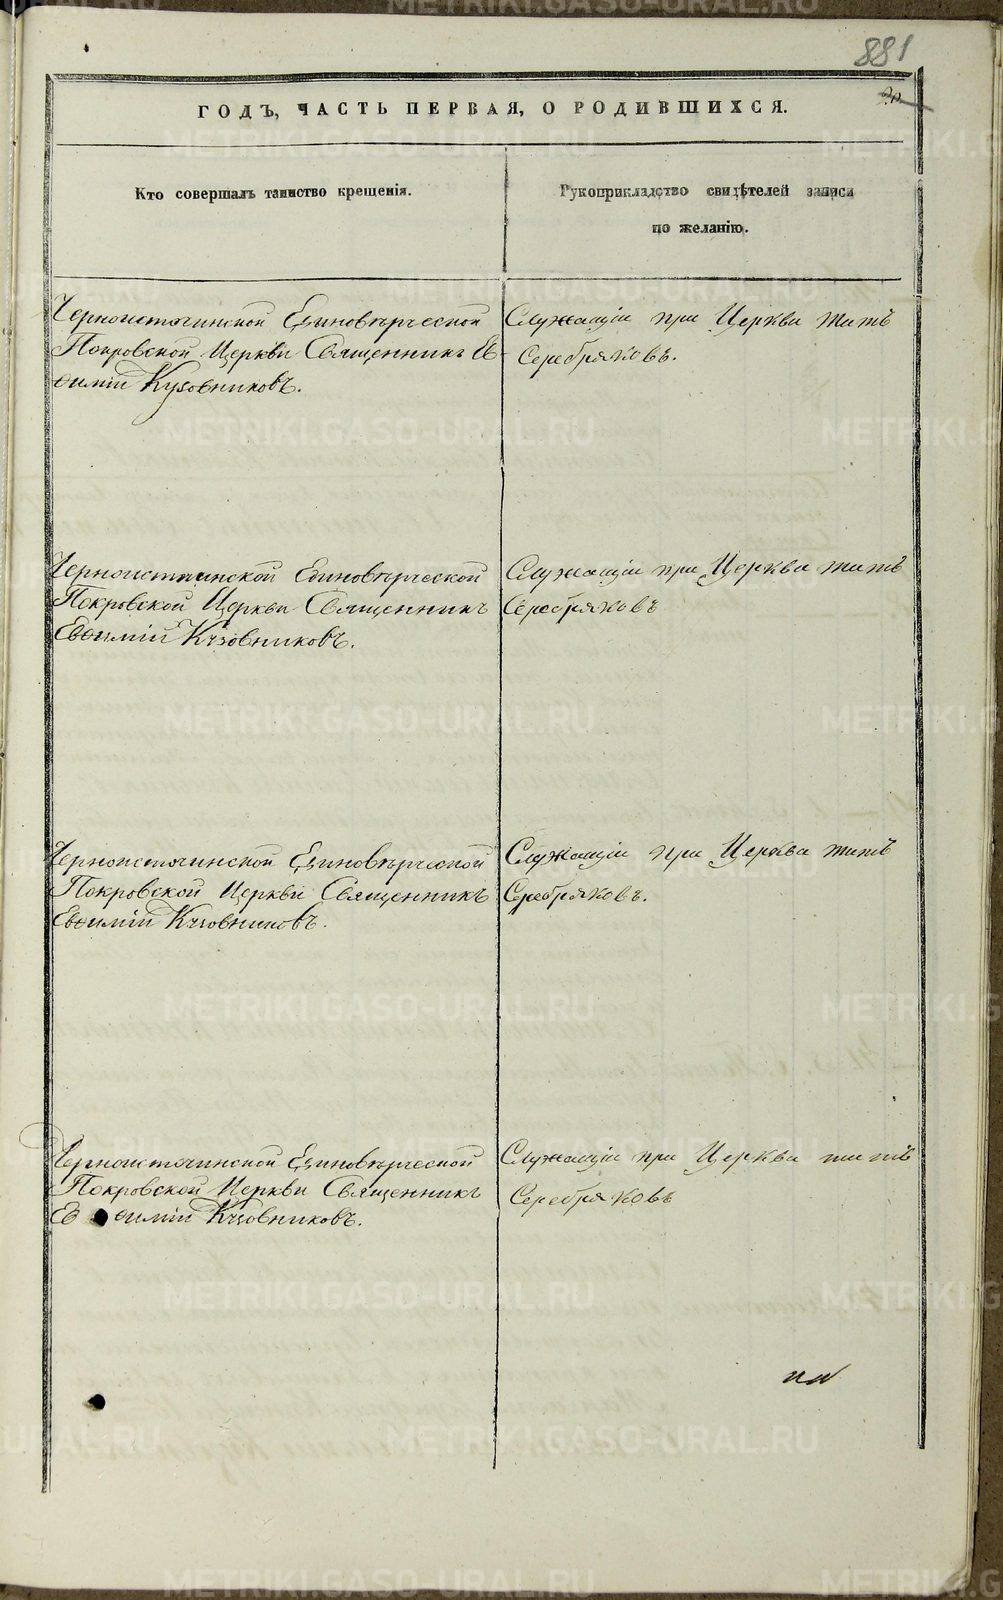 881
ГОДЪ, ЧАСТЬ ПЕРВАЯ, О РОДИВШИХСЯ.
Кто совершалъ таинство крещенія.
Рукоприкладство свидѣтелей записи
по желанію.
Черноисточинской Единовѣрческой
Покровской Церкви Священникъ Ев-
ѳимій Кузовниковъ.
Служащій при Церкви
Серебряковъ.
Черноисточинской Единовѣрческой
Покровской Церкви Священникъ
Евѳимій Кузовниковъ.
Служащій при Церкви
Серебряковъ
Черноисточинской Единовѣрческой
Покровской Церкви Священникъ
Евѳимій Кузовниковъ.
Служащій при Церкви
Серебряковъ.
Черноисточинской Единовѣрческой
Покровской Церкви Священникъ
Евѳимій Кузовниковъ.
Служащій при Церкви
Серебряковъ
METRIKI.GASO-URAL.RU